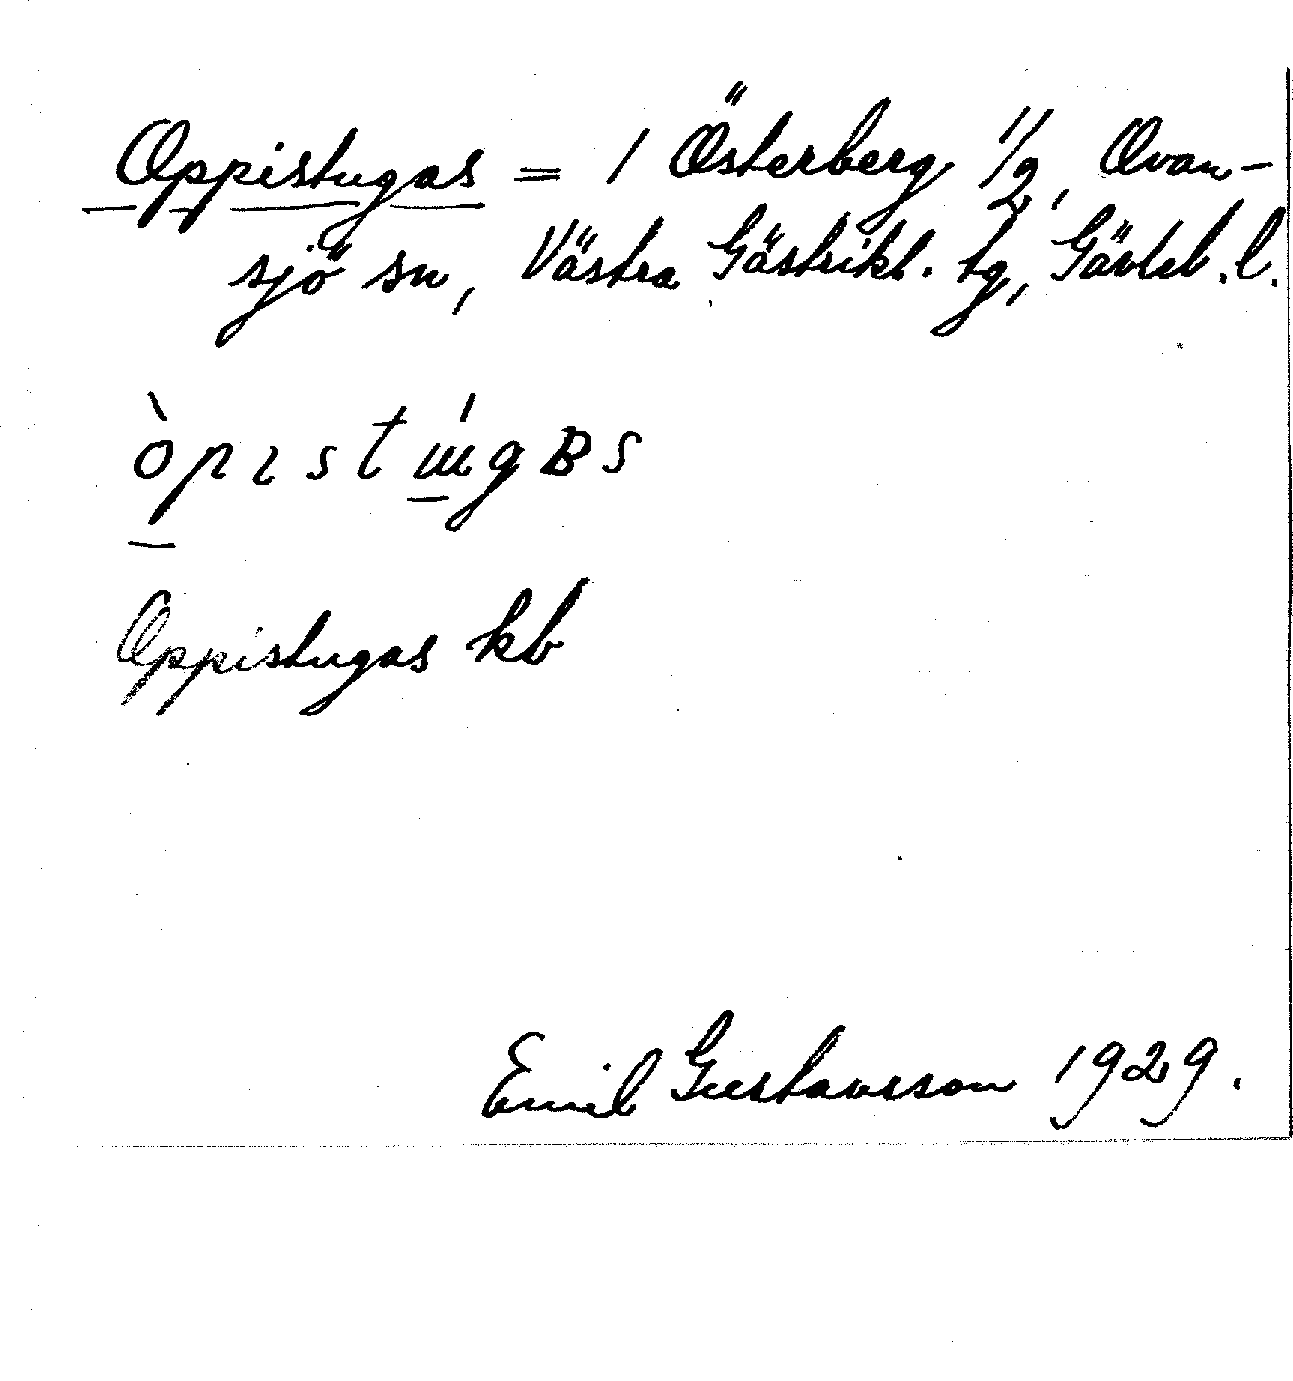 Oppistugas = 1 Österberg 1/2, Ovan-
sjö sn, Västra Gästrikl. tg, Gävleb. l.
òpıstɯ́gʙs
Oppistugas kb
Emil Gustavsson 1929.